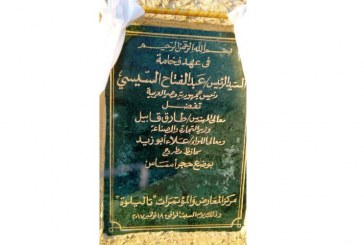 بسم الله الرحمن الرحيم
فى عهد فخامة
السيد الرئيس/عبد الفتاح السيسي
رئيس جمهورية مصر العربية
تفضل
معالى المهندس/ طارق قابيل
وزير التجارة والصناعة
ومعالى اللواء/ علاء أبو زيد
محافظ مطروح
بوضع حجر أساس
مركز المعارض والمؤتمرات
وذلك يوم السبت الموافق ١٨ نوفمبر ٢٠١٧